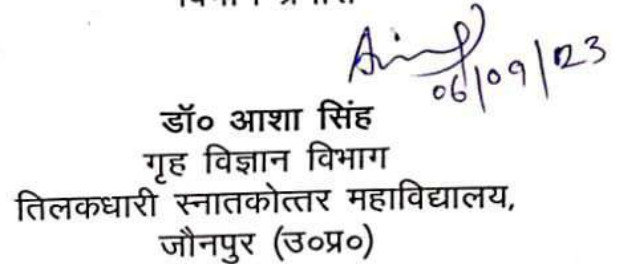 06/09/23
डॉ० आशा सिंह
गृह विज्ञान विभाग
तिलकधारी स्नातकोत्तर महाविद्यालय,
जौनपुर (उ०प्र०)